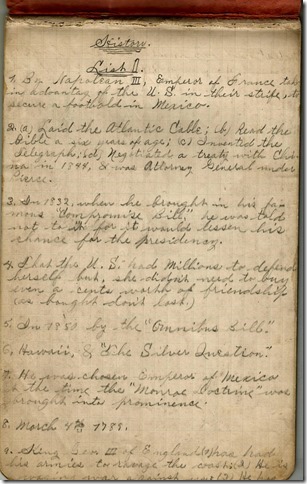 History.
List I.
1. By Napolean III, Emperor of France
in advantag of the U.S. in their strife, to
secure a foothold in Mexico.
2. (a) Laid the Atlantic Cable; (b) Read the
Bible a six years of age; (c) Invented the
Telegraph; (d) Negotiated a treaty with Chi
na in 1844, & was Attorney General under
Pierce.
3. In 1832, when he brought in his fa
mous "Compromise Bill," he was told
not to for it would lessen his
chance for the presidency.
4. That the U.S. had Millions to defend
herself but, she didn't need to buy
even a cents worth of friendship
(as bought don't last.)
5. In 1850 by the "Omnibus bill."
6. Hawaii, & "The Silver Question."
7. He was chosen Emperor of Mexico
at the time the "Monroe Doctrine" was
brought into prominence.
8. March 4th 1788.
9. King Geo III of England has had
his armies to ravage the coasts; He is
against